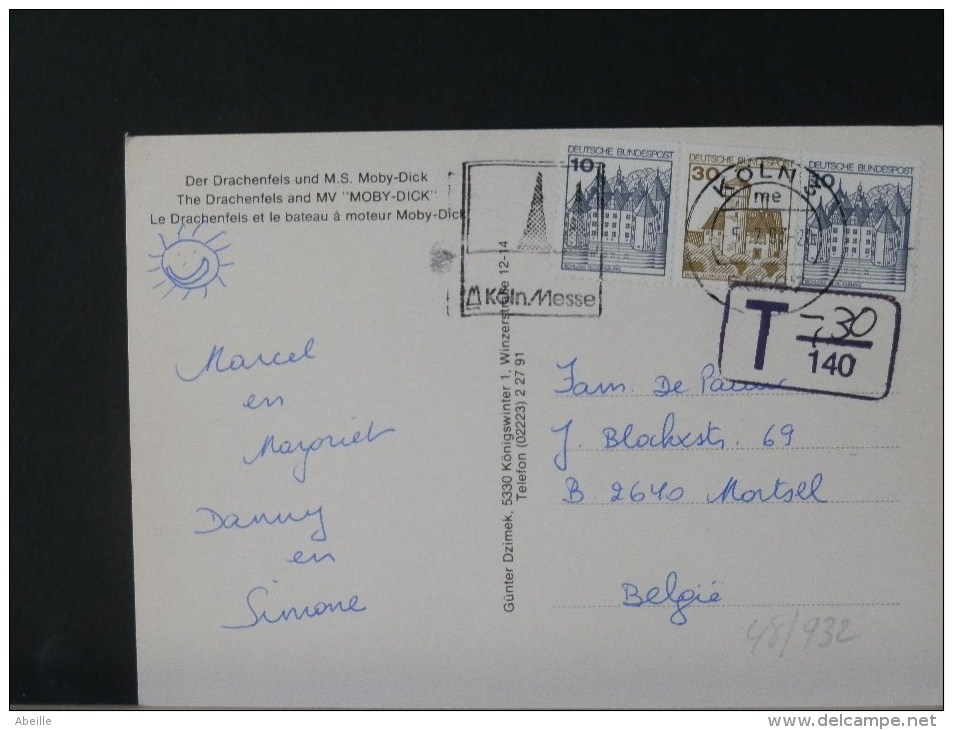 Der Drachenfels und M.S. Moby-Dick
The Drachenfels and MV "MOBY-DICK"
Le Drachenfels et le bateau à moteur Moby-Dick
Marcel
en
Marjoriet
Danny
en
Simone
Köln Messe
Günter Dzimek, 5330 Königswinter 1, Winzerstraße 12-14
Telefon (02223) 2 27 91
DEUTSCHE BUNDESPOST
10
DEUTSCHE BUNDESPOST
30
DEUTSCHE BUNDESPOST
KÖLN
me
T 30
140
Fam. De
J. Blockxstr. 69
B 2640 Mortsel
België
48/932
Abeille
www.delcampe.net